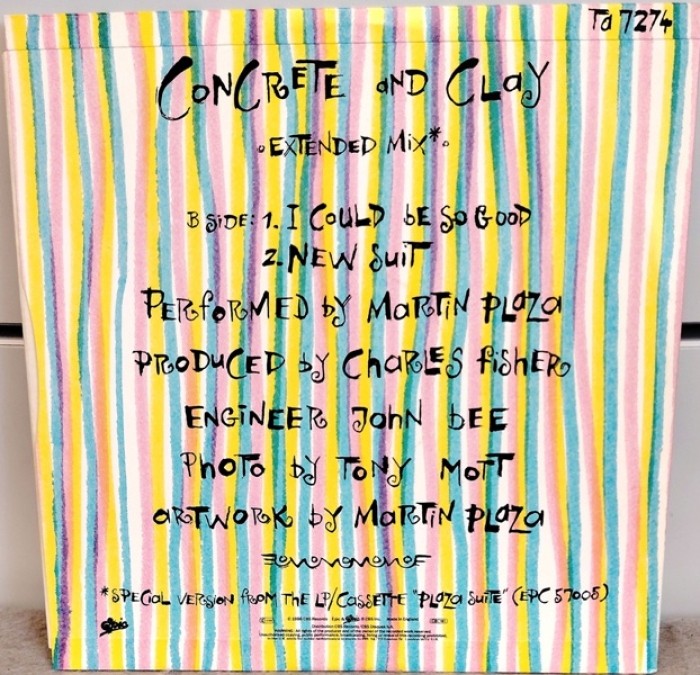 Ta 7274
CONCRETE aND CLaY
EXTENDED MiX*
B SiDE: 1. I COULD bE SO GOOD
2. NEW SuiT
PERfoRMED by MaRTiN PLaZa
PRODuCED by CHaRLES fiSHER
ENGINEER JOHN bEE
PHOTO by TONY MOTT
aRTWORK by MaRTiN PLaZa
*SPECiaL VERSiON fROM THE LP/CaSSETTE "PLaZa SuiTE" (EPC 57005)
Epic